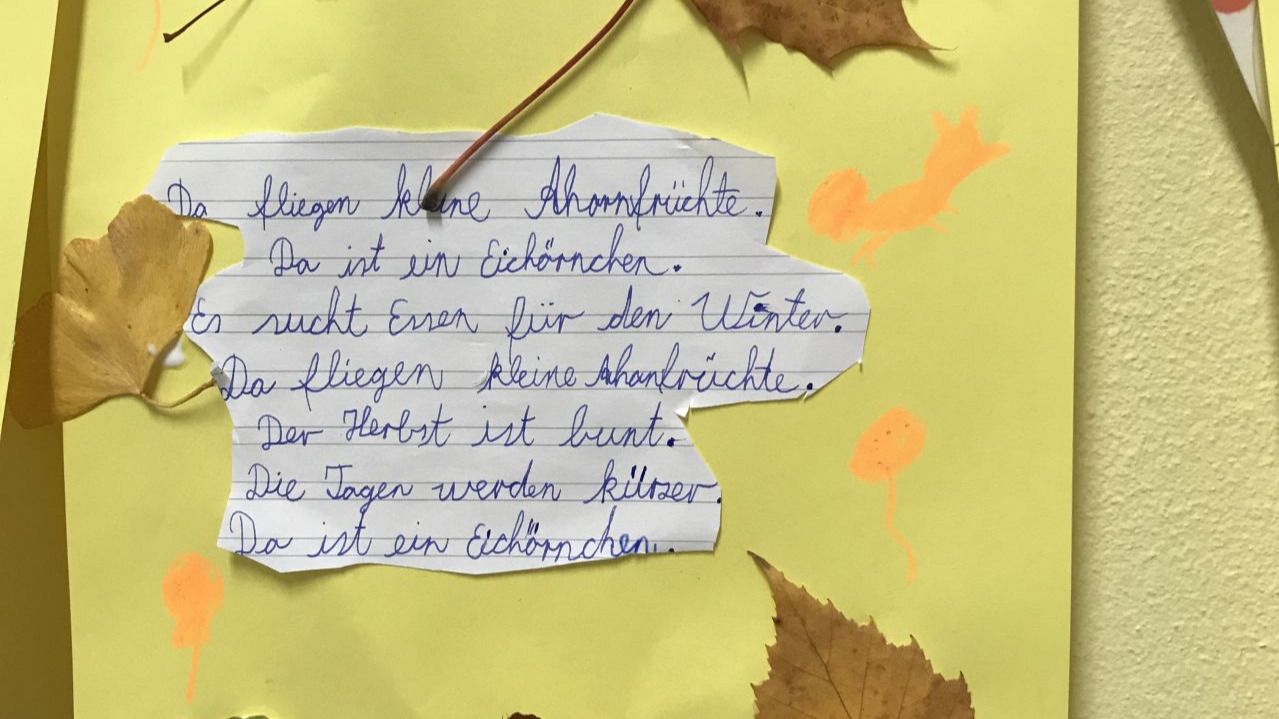 Da fliegen kleine Ahornfrüchte.
Da ist ein Eichörnchen.
Es sucht Essen für den Winter.
Da fliegen kleine Ahanfrüchte.
Der Herbst ist bunt.
Die Tagen werden kürzer.
Da ist ein Eichörnchen.